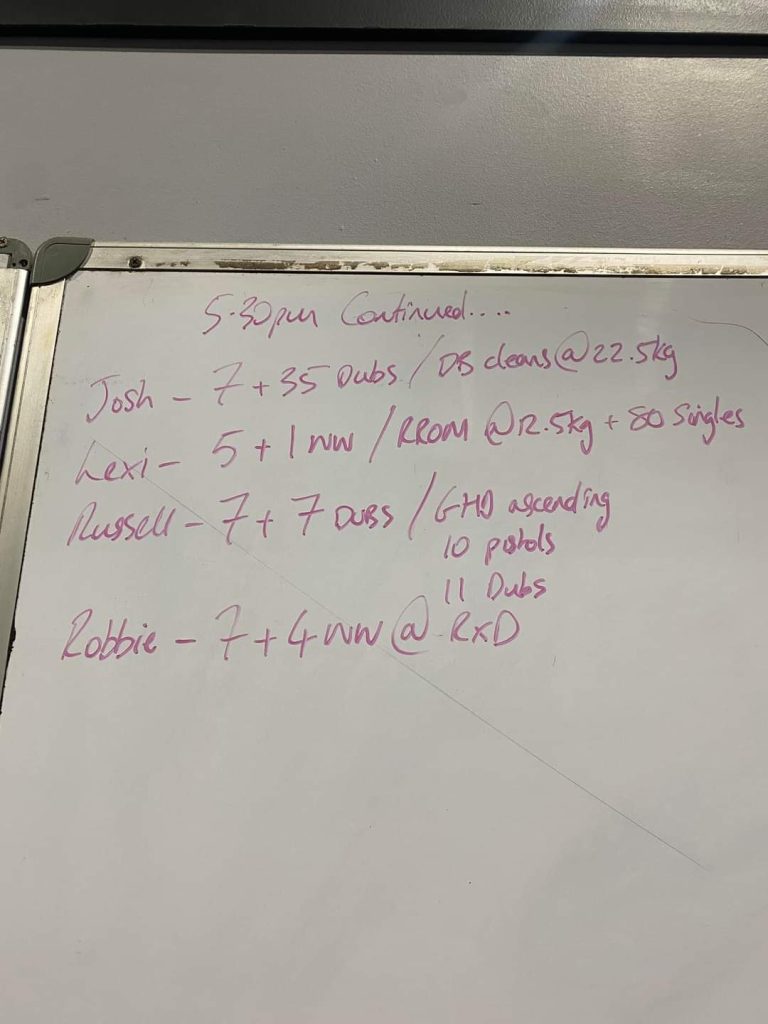 5.30pm Continued....
Josh - 7 + 35 Dubs / DB cleans @ 22.5kg
Lexi - 5 + 1 WW / RROM @ 12.5kg + 80 Singles
Russell - 7 + 7 DUBS / GHD ascending
10 pistols
11 Dubs
Robbie - 7 + 4 WW @ RXD